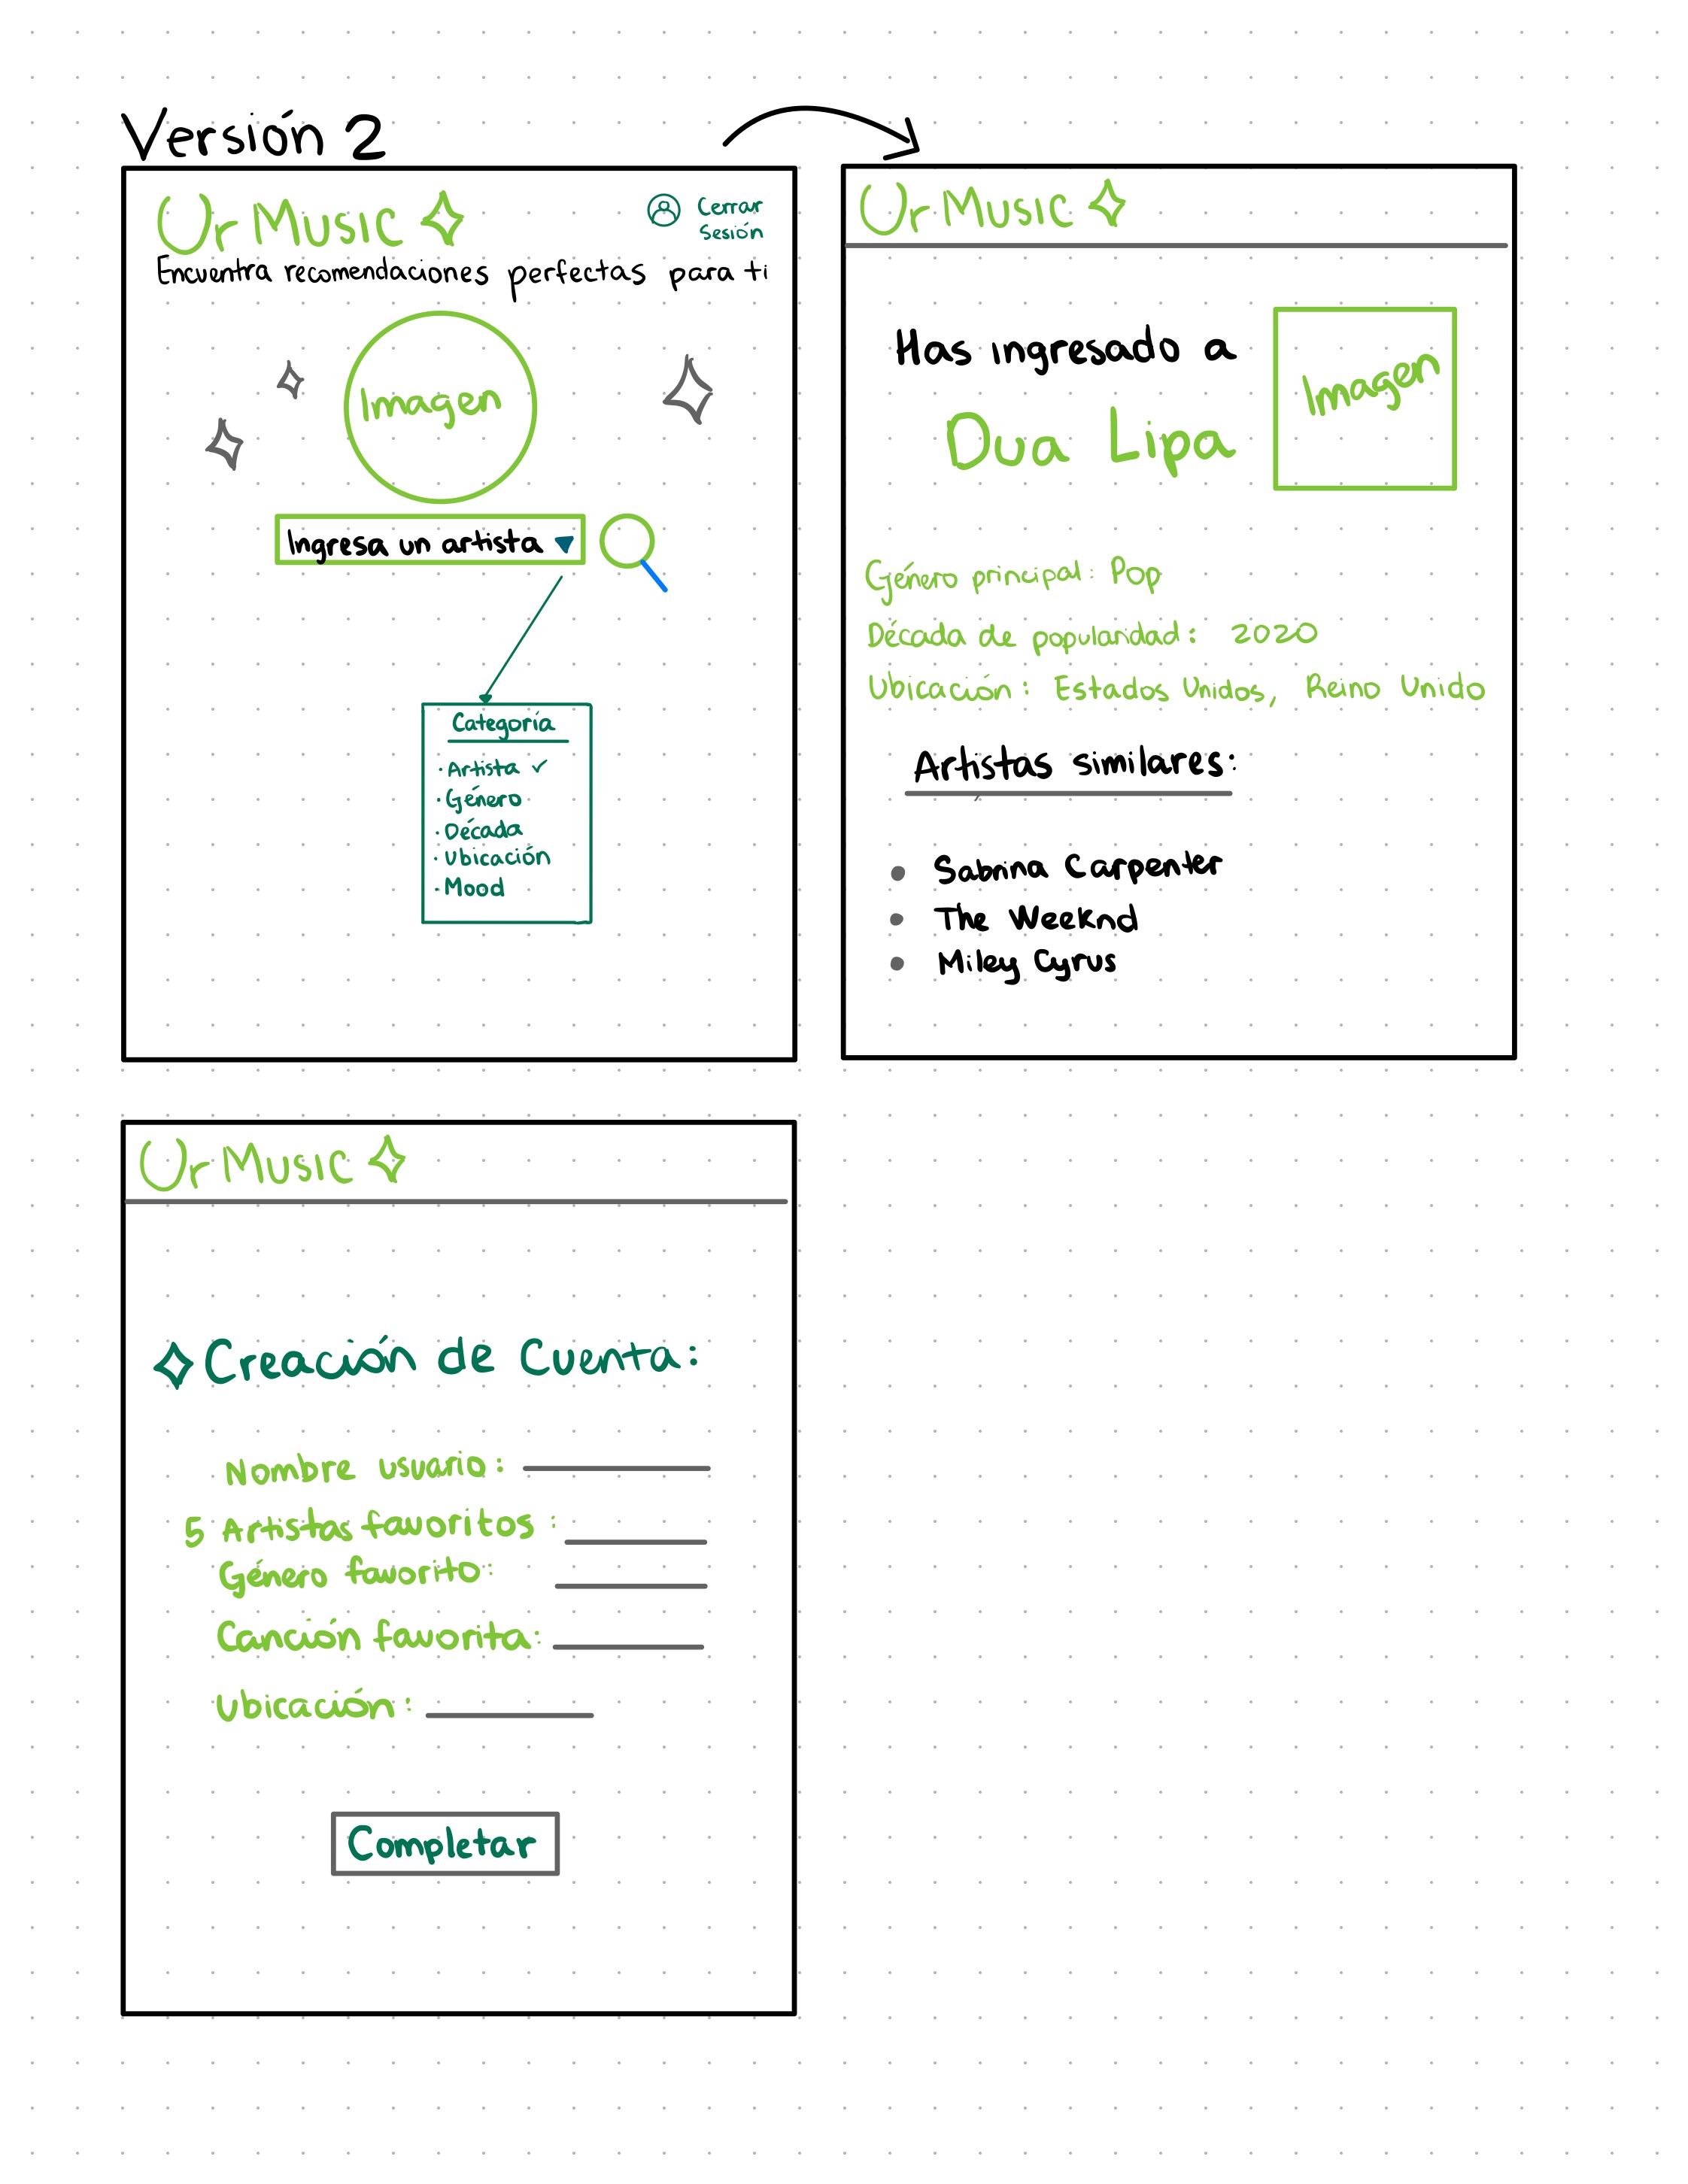 Versión 2
Ur Music
Cerrar
Sesión
Encuentra recomendaciones perfectas para ti
Imagen
Ingresa un artista
Categoría
· Artista ✓
· Género
· Década
· Ubicación
· Mood
Ur Music
Has ingresado a
Dua Lipa
Imagen
Género principal: Pop
Década de popularidad: 2020
Ubicación: Estados Unidos, Reino Unido
Artistas similares:
• Sabrina Carpenter
• The Weeknd
• Miley Cyrus
Ur Music
Creación de Cuenta:
Nombre usuario:
5 Artistas favoritos:
Género favorito:
Canción favorita:
Ubicación:
Completar